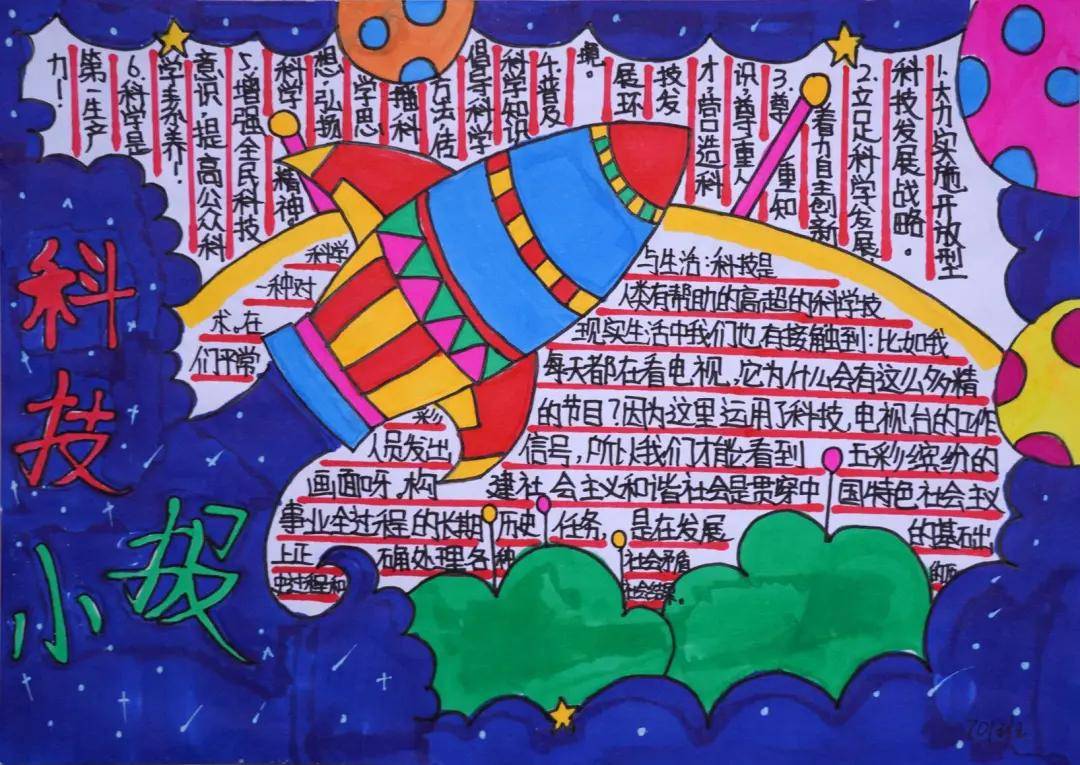 科技
小报
1.大力实施开放型
科技发展战略。
2.立足科学发展
着力自主创新
3.尊重知
识,尊重人
才,营造科
技发
展环
境。
4.普及
科学知识
倡导科学
方法,传
播科
学思
想,弘扬
科学精神
5.增强全民科技
意识,提高公众科
学素养!
6.科学是
第一生产
力!
科学与生活:科技是
一种对人类有帮助的高超的科学技
术。在现实生活中我们也有接触到:比如我
们平常每天都在看电视,它为什么会有这么多精
彩的节目?因为这里运用了科技,电视台的工作
人员发出信号,所以我们才能看到五彩缤纷的
画面呀。构建社会主义和谐社会是贯穿中国特色社会主义
事业全过程的长期历史任务,是在发展的基础
上正确处理各种社会矛盾的历
史过程和社会结果。